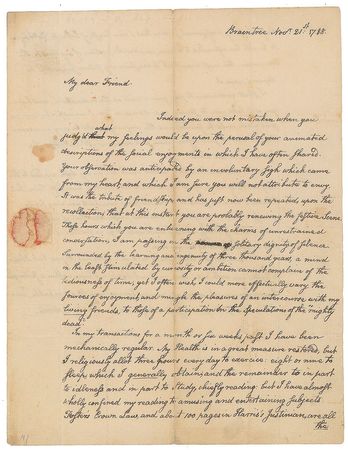 Braintree Novr. 21.st 1788.
My dear Friend
Indeed you were not mistaken when you
what
judg'd that my feelings would be upon the perusal of your animated
descriptions of the social enjoyments in which I have often shared.
Your observation was anticipated by an involuntary sigh which came
from my heart, and which I am sure you will not attribute to envy.
It was the tribute of friendship, and has just now been repeated, upon the
recollection that at this instant you are probably renewing the festive Scene.
Those hours which you are enlivening with the charms of unrestrained
conversation, I am passing in the solitary dignity of silence.
Surrounded by the learning and ingenuity of three thousand years, a mind
in the least stimulated by curiosity or ambition cannot complain of the
tediousness of time; yet I often wish I could more effectually vary the
sources of enjoyment, and mingle the pleasures of an intercourse with my
living friends, to those of a participation in the speculations of the "mighty
dead"
In my transactions for a month or six weeks past I have been
mechanically regular. My Health is in a great measure restored, but
I religiously allot three hours every day to exercise: eight or nine to
sleep which I generally obtain; and the remainder to in part
to idleness and in part to Study, chiefly reading: but I have almost
wholly confined my reading to amusing and entertaining subjects
Foster's Crown Law, and about 100 pages in Harris's Justinian, are all
the